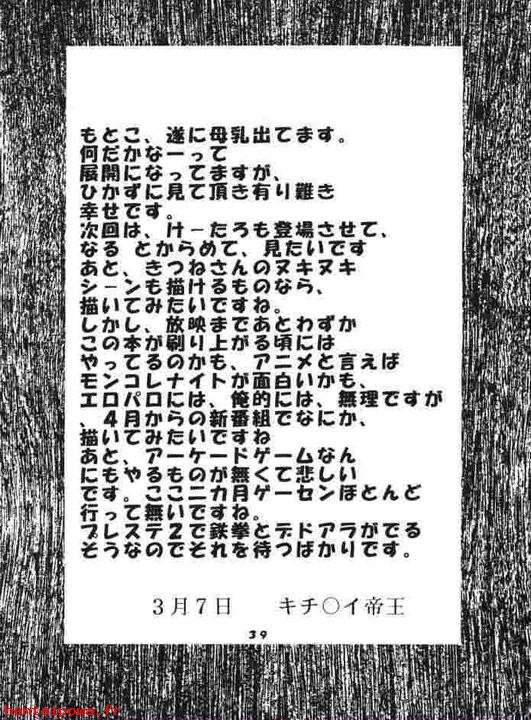 もとこ、遂に母乳出てます。
何だかなーって
展開になってますが、
ひかずに見て頂き有り難き
幸せです。
次回は、けーたろも登場させて、
なる とからめて、見たいです
あと、きつねさんのヌキヌキ
シーンも描けるものなら、
描いてみたいですね。
しかし、放映まであとわずか
この本が刷り上がる頃には
やってるのかも、アニメと言えば
モンコレナイトが面白いかも、
エロパロには、俺的には、無理ですが
、4月からの新番組でなにか、
描いてみたいですね
あと、アーケードゲームなん
にもやるものが無くて悲しい
です。ここ二カ月ゲーセンほとんど
行って無いですね。
プレステ2で鉄拳とデドアラがでる
そうなのでそれを待つばかりです。
3月7日 キチ○イ帝王
39
hentaipowa.fr